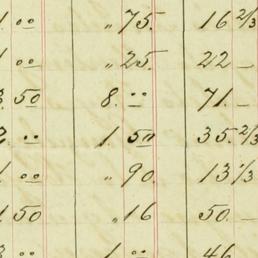 1. 00 „ 75. 16 2/3
1 00 „ 25. 22 –
3. 50 8. 00 71. –
2. 00 1. 50 35. 2/3
1 00 „ 90. 13 1/3
1 50 „ 16 50. –
3 00 1 00 46